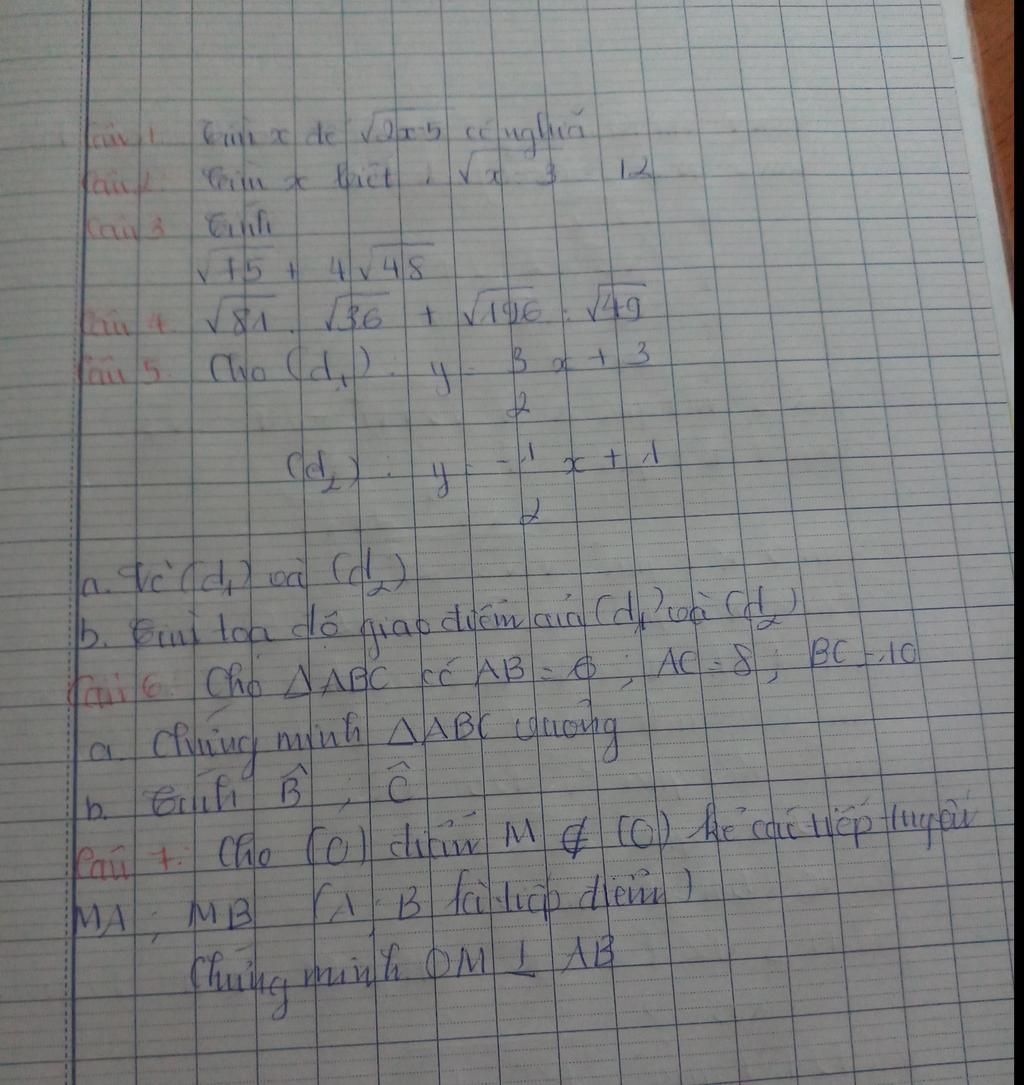 Câu 1. Tìm x để √2x-5 có nghĩa
Câu 2. Tìm x biết: √x-3 = 12
Câu 3. Tính
√75 + 4√48
Câu 4. √81 . √36 + √196 : √49
Câu 5. Cho (d₁): y = 3/2 x + 3
(d₂): y = -1/2 x + 1
a. Vẽ (d₁) và (d₂)
b. Tìm tọa độ giao điểm của (d₁) và (d₂)
Câu 6. Cho ΔABC có AB = 6 ; AC = 8 ; BC = 10
a. Chứng minh ΔABC vuông
b. Tính B̂ , Ĉ
Câu 7. Cho (O) điểm M ∉ (O) kẻ các tiếp tuyến
MA ; MB (A, B là tiếp điểm)
Chứng minh OM ⊥ AB